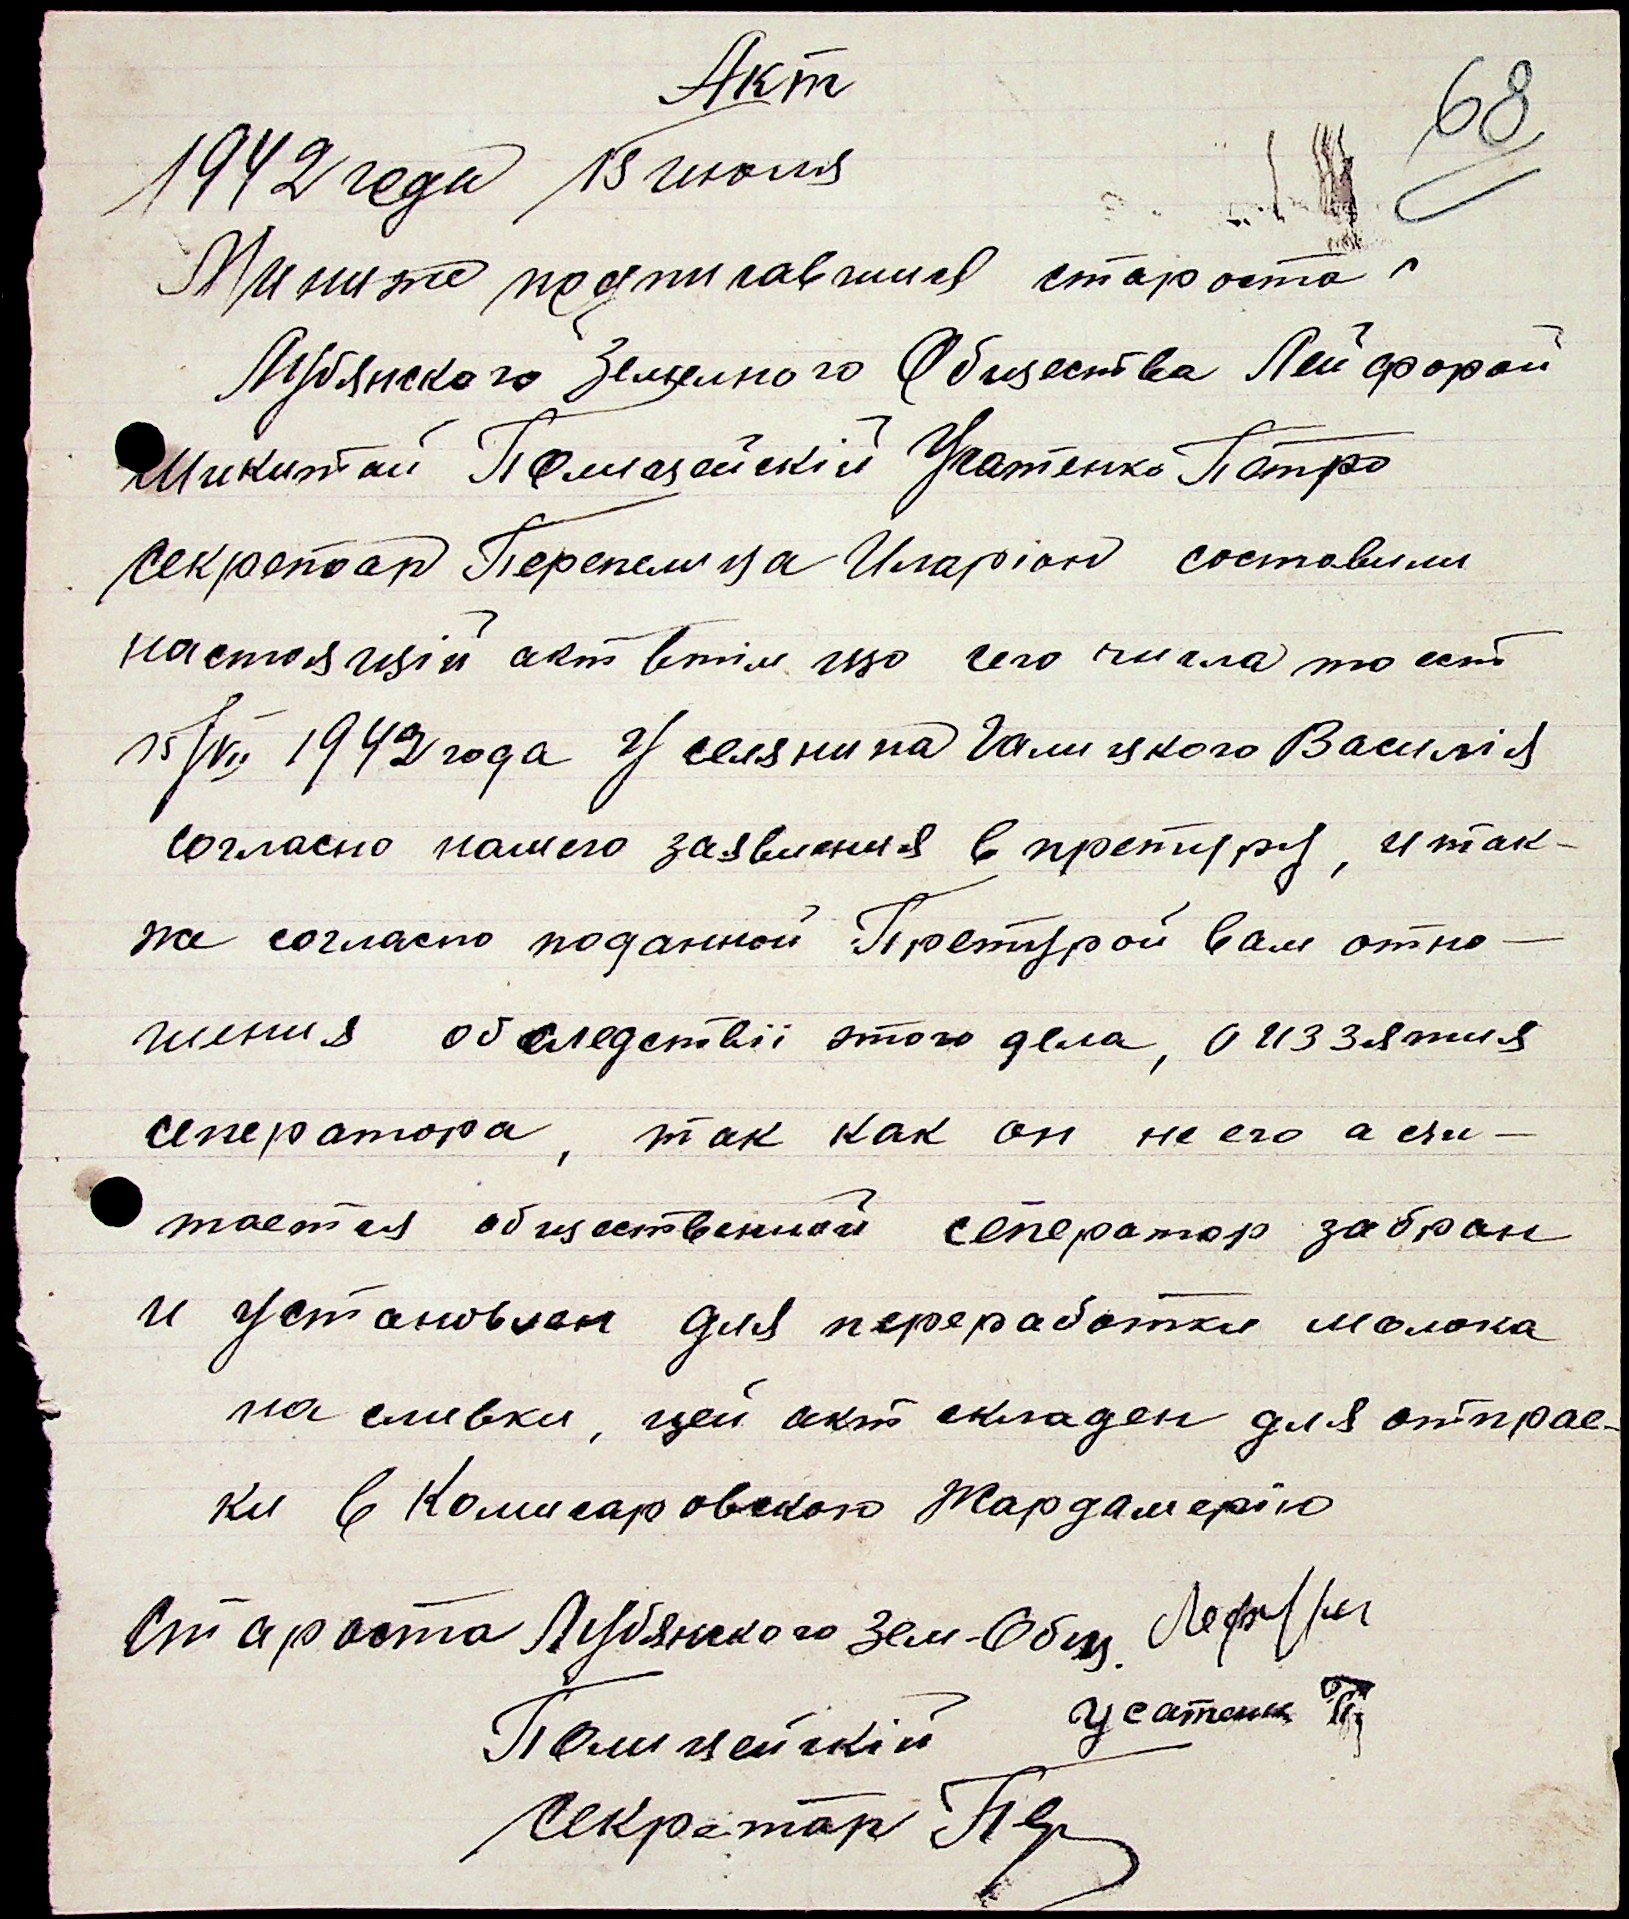 Акт
68
1942 года 15 июля
Ми ниже подписавшиея староста
ЛубянскогоЗемелного Общества Лейфорой
Микитай Полицейскій Усатенко Петро
секретар Перепелица Иларіон составили
настоящій акт втім що сего числа то ест
15/VII 1942 года У селянина Галицкого Василія
согласно нашего заявления в претуру, и так-
же согласно поданной Претурой вам отно-
шения об следствіі этого дела, о иззятия
сеператора, так как он не его а счи-
тается общественной сеператор забран
и установлен для переработки молока
на сливки, цей акт складен для отправ-
ки в Комисаровскою Жардамерію
Староста Лубянского Зем-Общ.
Полицейскій Усатенк П
секретар Пер